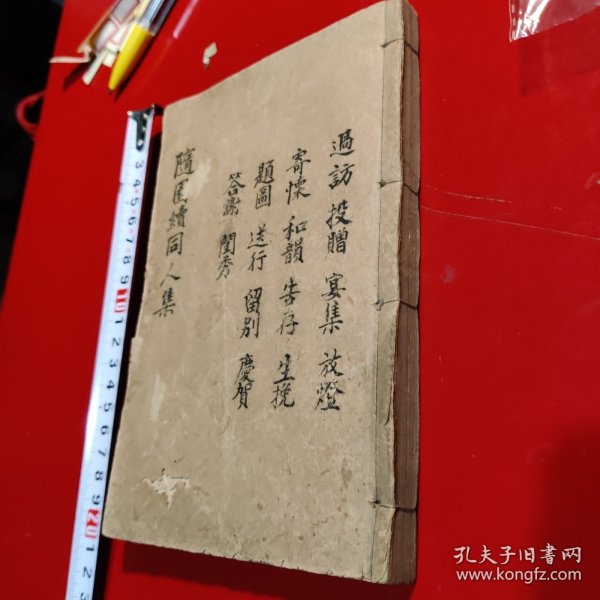 過訪 投贈 宴集 放燈
寄懷 和韻 告存 生挽
題圖 送行 留別 慶賀
答謝 閨秀
隨園續同人集
3 4 5 6 7 8 9 10 1 2 3 4 5 6 7 8 9 20 1 2 3
孔夫子旧书网
www.kongfz.com